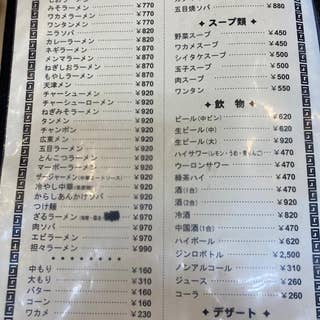 みそラーメン ￥770
ワカメラーメン ￥770
ワンタンメン ￥770
ニラソバ ￥820
カレーラーメン ￥870
ネギラーメン ￥870
メンマラーメン ￥870
ねぎしおラーメン ￥870
もやしラーメン ￥870
天津メン ￥870
チャーシューメン ￥920
チャーシューローメン ￥920
ねぎみそラーメン ￥920
タンメン ￥920
チャンポン ￥920
広東メン ￥920
五目ラーメン ￥920
とんこつラーメン ￥920
ザージャーメン ￥920
冷やし中華 ￥920
からしあんかけソバ ￥920
つけ麺 ￥970
ざるラーメン ￥970
肉ソバ ￥970
エビラーメン ￥990
担々ラーメン ￥990
中もり ￥160
大もり ￥310
バター ￥160
コーン ￥160
ワカメ ￥230
五目焼ソバ ￥880
スープ類
野菜スープ ￥450
ワカメスープ ￥450
シイタケスープ ￥500
玉子スープ ￥500
肉スープ ￥500
ワンタン ￥550
飲物
ビール(中ビン) ￥620
生ビール(中) ￥620
生ビール(大) ￥920
ハイサワー ￥470
ウーロンサワー ￥470
緑茶ハイ ￥470
酒(1合) ￥470
酒(2合) ￥920
冷酒 ￥820
中国酒(1合) ￥470
ハイボール ￥620
ジンロボトル ￥2,500
ノンアルコール ￥310
ジュース ￥260
コーラ ￥260
デザート